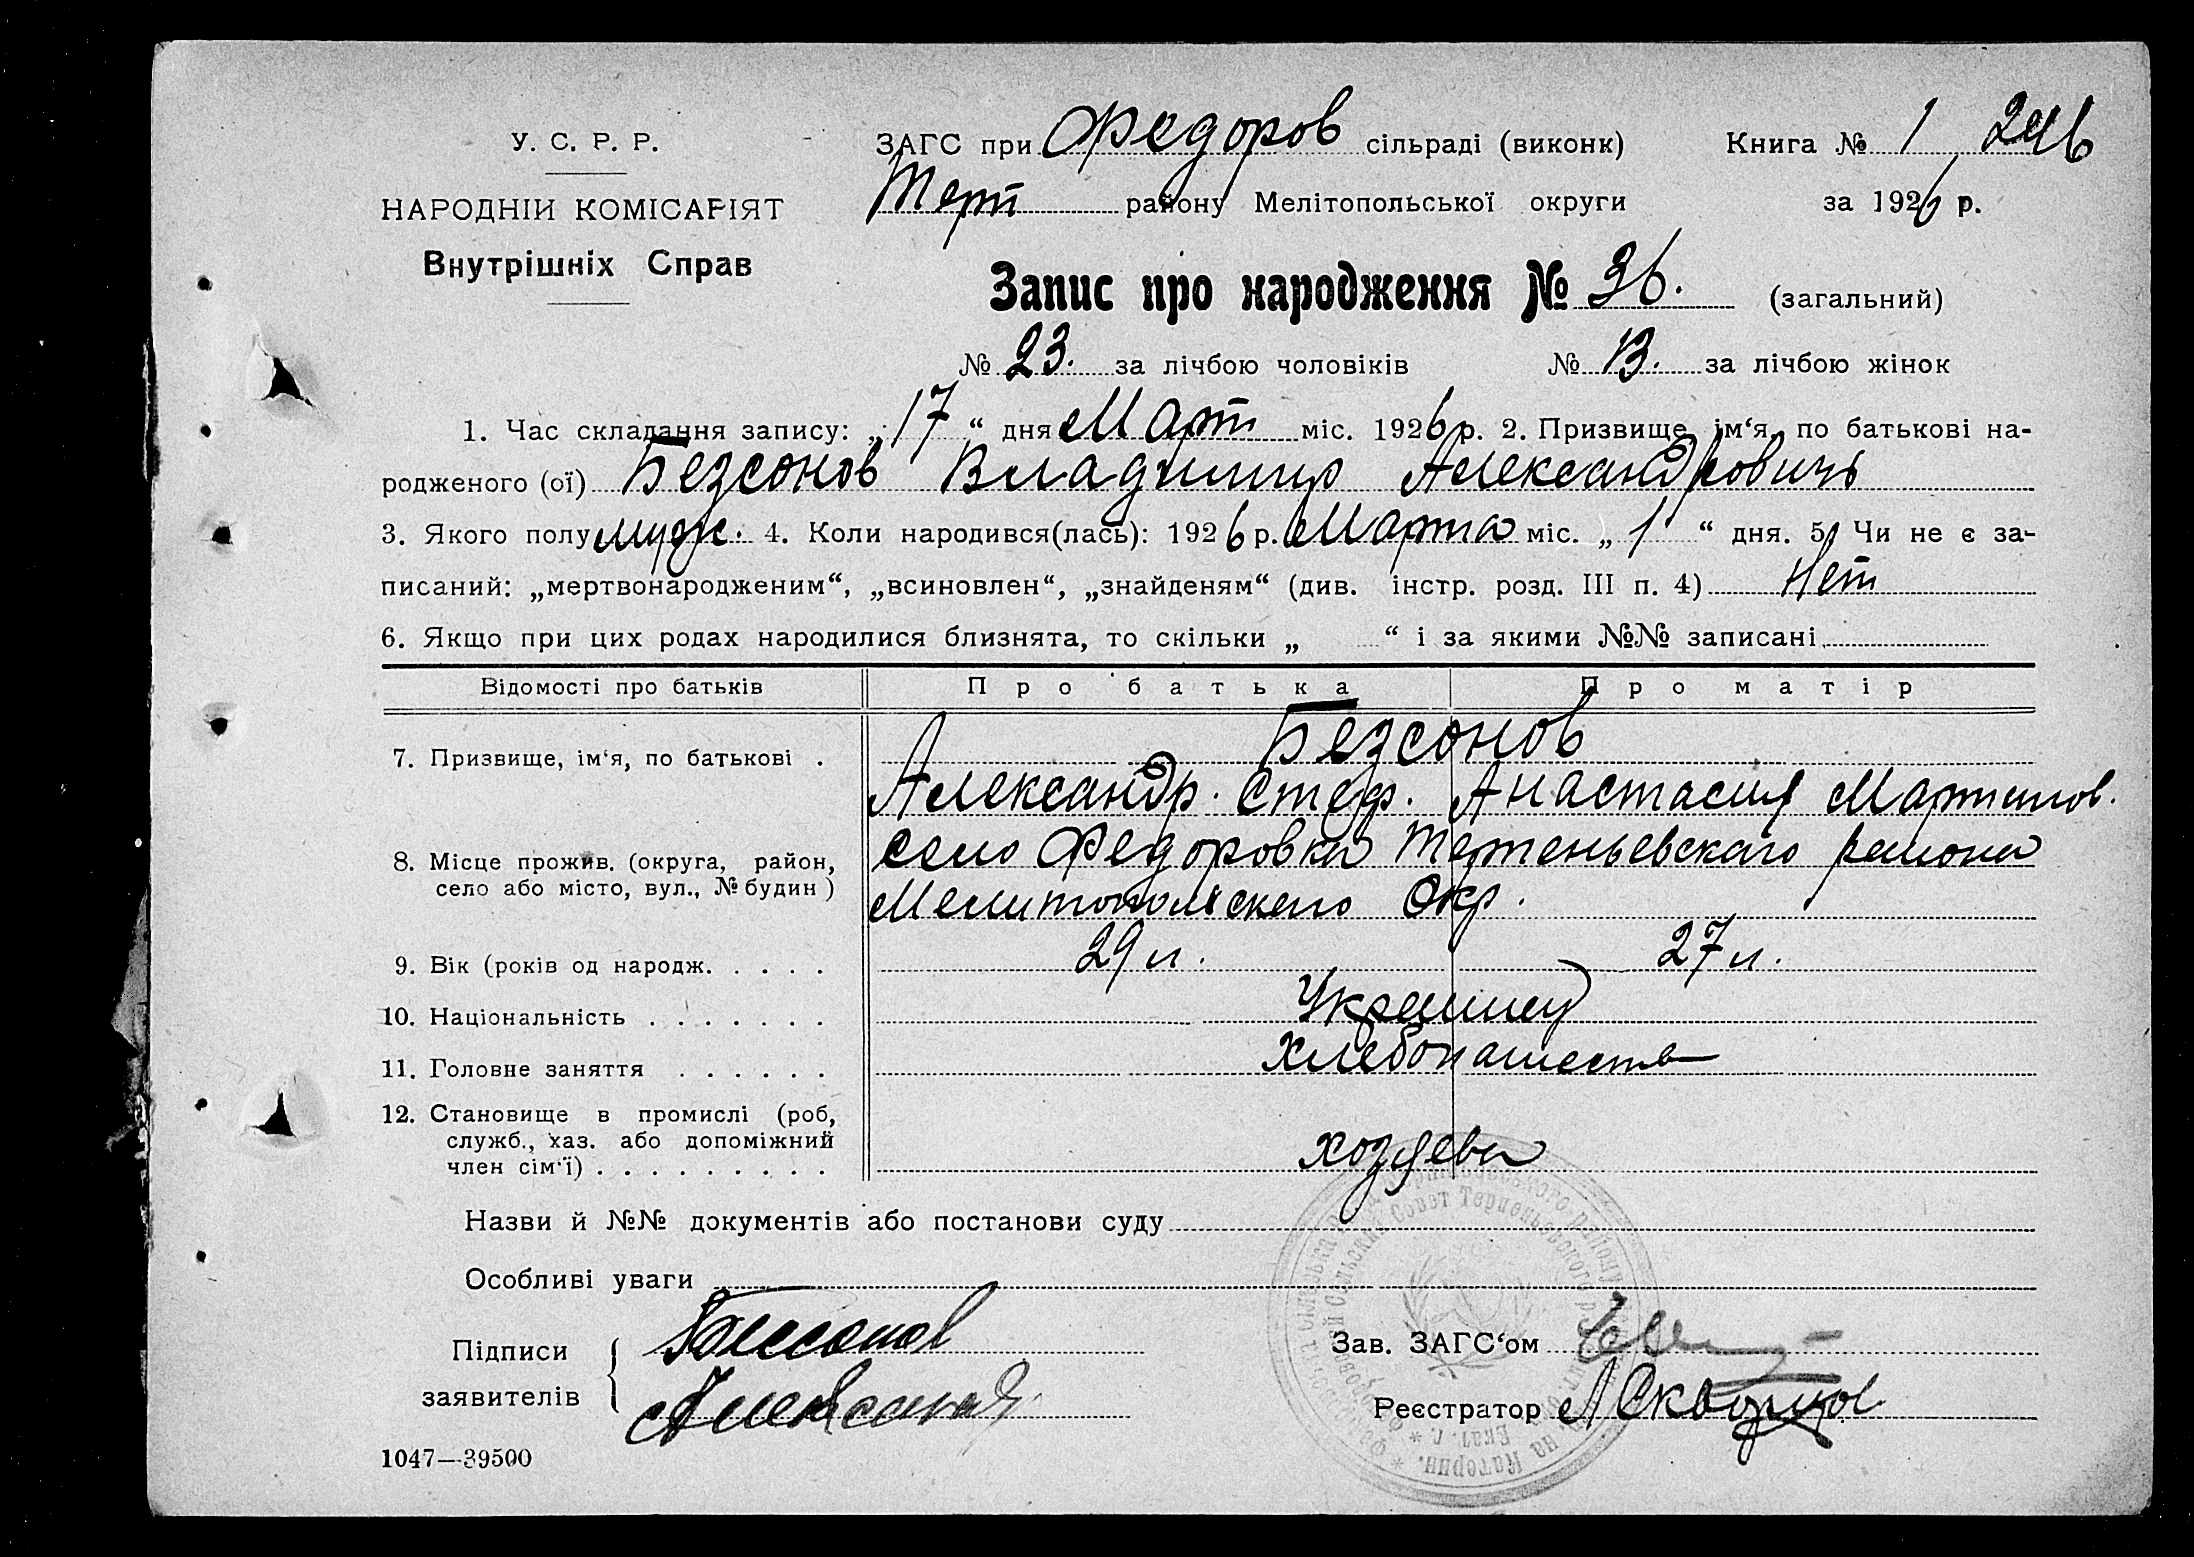 У. С. Р. Р.
НАРОДНІЙ КОМІСАРІЯТ
Внутрішніх Справ
ЗАГС при Федоров сільраді (виконк) Книга № 1
Терп району Мелітопольської округи за 1926 р.
Запис про народження № 36. (загальний)
№ 23. за лічбою чоловіків № 13. за лічбою жінок
1. Час складання запису: „17“ дня Март міс. 1926 р. 2. Призвище, ім‘я, по батькові на-
родженого (ої) Безсонов Владимир Александровичь
3. Якого полу муж. 4. Коли народився(лась): 1926 р. Марта міс. „1“ дня. 5. Чи не є за-
писаний: „мертвонародженим“, „всиновлен“, „знайденям“ (див. інстр. розд. III п. 4) Нет
6. Якщо при цих родах народилися близнята, то скільки „ “ і за якими №№ записані
Відомості про батьків Про батька Про матір
7. Призвище, ім‘я, по батькові . Безсонов
Александр. Стеф. Анастасия Мартинов.
8. Місце прожив. (округа, район, село або місто, вул., № будин ) село Федоровка Терпеньевскаго района
Мелитопольскаго Окр.
9. Вік (років од народж. . . . . 29 л. 27 л.
10. Національність . . . . . . . Украинцы
11. Головне заняття . . . . . . Хлебопашеств
12. Становище в промислі (роб, служб., хаз. або допоміжний член сім‘ї) . . . . . . . . . хозяева
Назви й №№ документів або постанови суду
Особливі уваги
Підписи заявителів Безсонов
Зав. ЗАГС‘ом
Реєстратор Л Скворцов
1047—39500